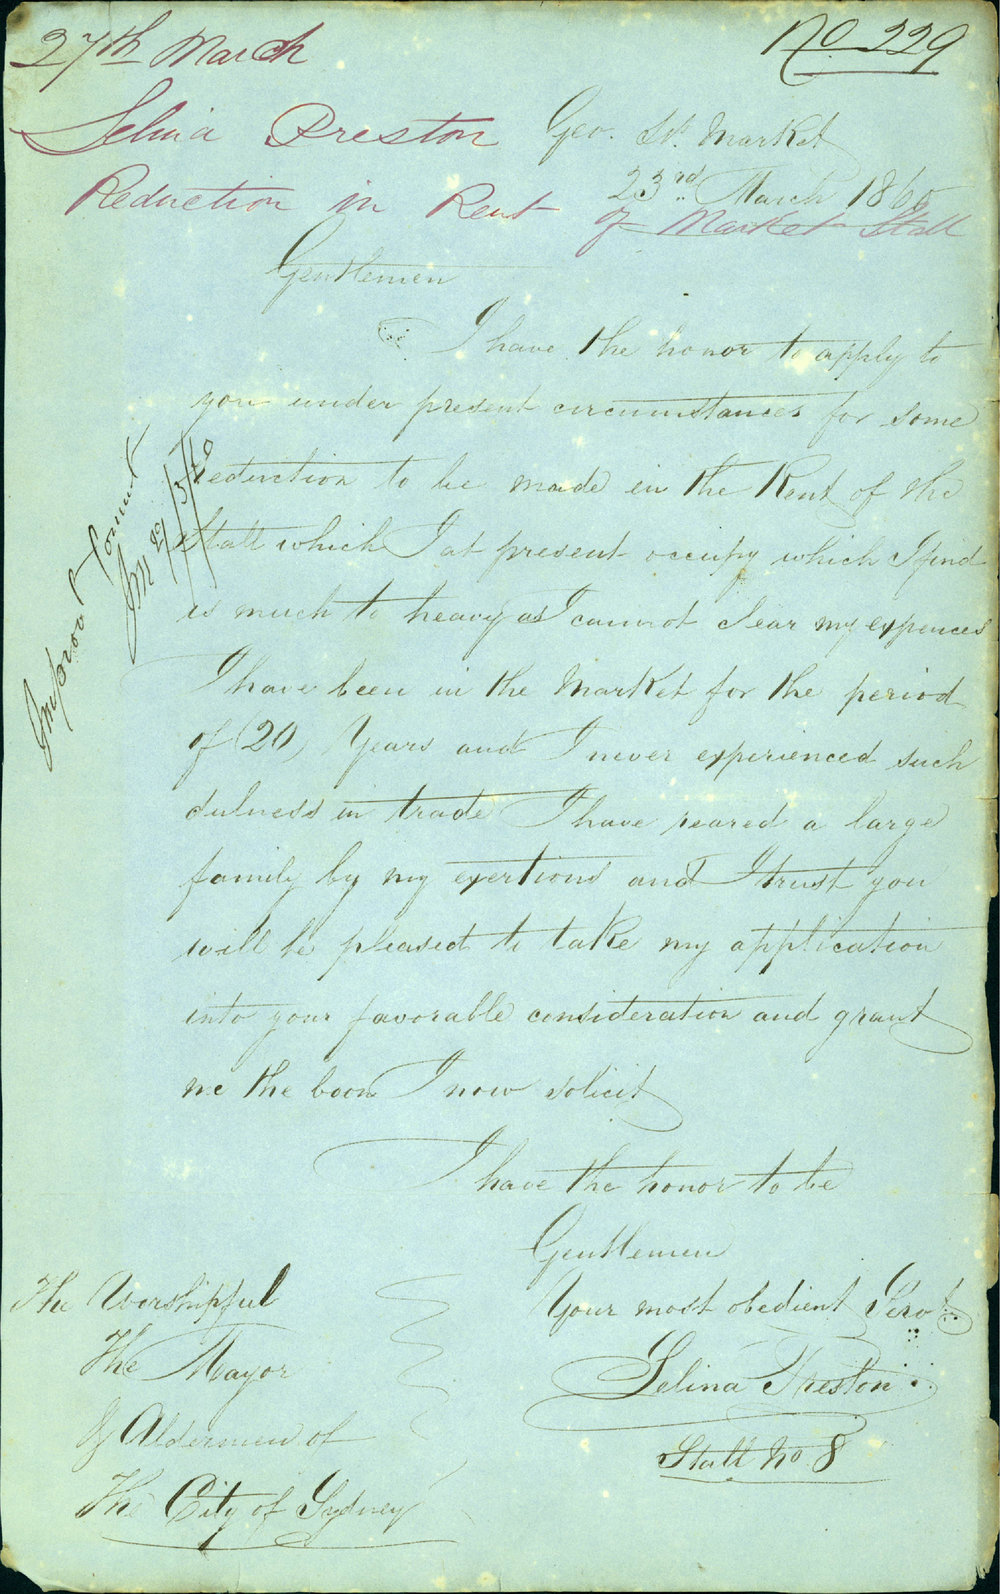 27th March
No. 229
Selina Preston
Geo. St. Market
23rd March 1860
Reduction in Rent of Market Stall
Gentlemen
I have the honor to apply to
you under present circumstances for some
reduction to be made in the Rent of the
Stall which I at present occupy which I find
is much to heavy as I cannot clear my expences
I have been in the Market for the period
of (20) Years and I never experienced such
dulness in trade I have reared a large
family by my exertions and I trust you
will be pleased to take my application
into your favorable consideration and grant
me the boon I now solicit
I have the honor to be
Gentlemen
Your most obedient Servt.
Selina Preston
Stall No 8
The Worshipful
The Mayor
& Aldermen of
The City of Sydney
Improvt Committ
29/3/60